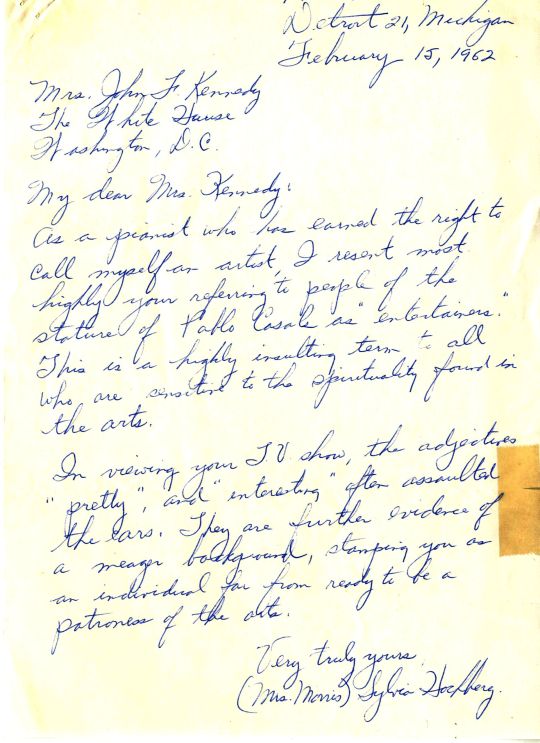 Detroit 21, Michigan
February 15, 1962
Mrs. John F Kennedy
The White House
Washington, D.C.
My dear Mrs. Kennedy:
As a pianist who has earned the right to
call myself an artist, I resent most
highly your referring to people of the
stature of Pablo Casals as "entertainers."
This is a highly insulting term to all
who are sensitive to the spirituality found in
the arts.
In viewing your T.V. show, the adjectives
"pretly", and "interesting" often assaulted
the ears. They are further evidence of
a meager background, stamping you as
an individual far from ready to be a
patroness of the arts.
Very truly yours,
(Mrs. Morris) Sylvia Hochberg.